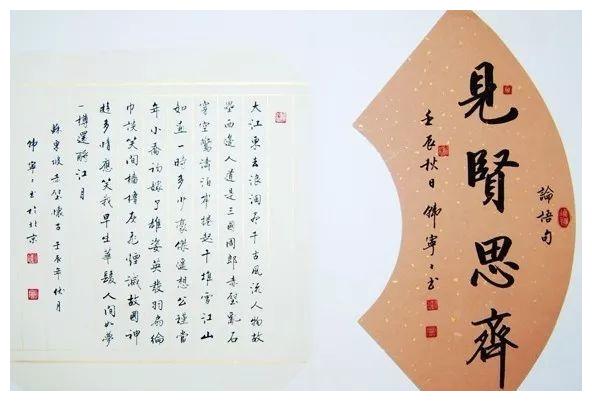 論語句
見賢思齊
壬辰秋日 寧〻书
大江東去浪淘尽千古風流人物故
壘西邊人道是三國周郎赤壁亂石
穿空驚濤拍岸捲起千堆雪江山
如畫一時多少豪傑遙想公瑾當
年小喬初嫁了雄姿英發羽扇綸
巾談笑間檣櫓灰飛煙滅故國神
遊多情應笑我早生華髮人間如夢
一樽還酹江月
蘇東坡赤壁懷古 壬辰年秋月
寧〻书於北京